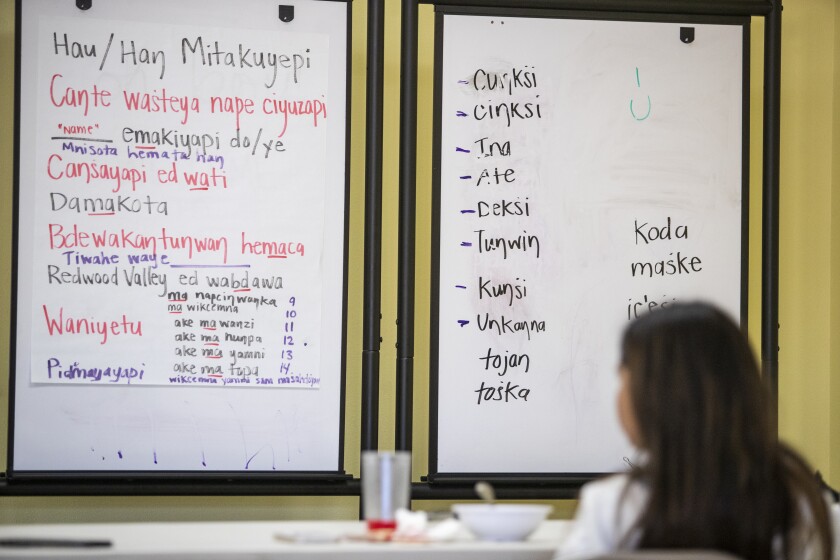 Hau/Haŋ Mitakuyepi
Caŋte waśteya nape ciyuzapi
"Name" emakiyapi do/ye
Mnisota hemataŋhaŋ
Caŋśayapi ed wati
Damakota
Bdewakaŋtuŋwaŋ hemaca
Tiwahe waye
Redwood Valley ed wabdawa
Waniyetu
ma napciŋwaŋka 9
ma wikcemna 10
ake ma waŋzi 11
ake ma nuŋpa 12
ake ma yamni 13
ake ma topa 14
wikcemna yamni sam
Pidmayayapi
- Cuŋkśi
- Ciŋkśi
- Ina
- Ate
- Dekśi
- Tuŋwiŋ
- Kuŋśi
- Uŋkaŋna
tojaŋ
tośka
Koda
maśke